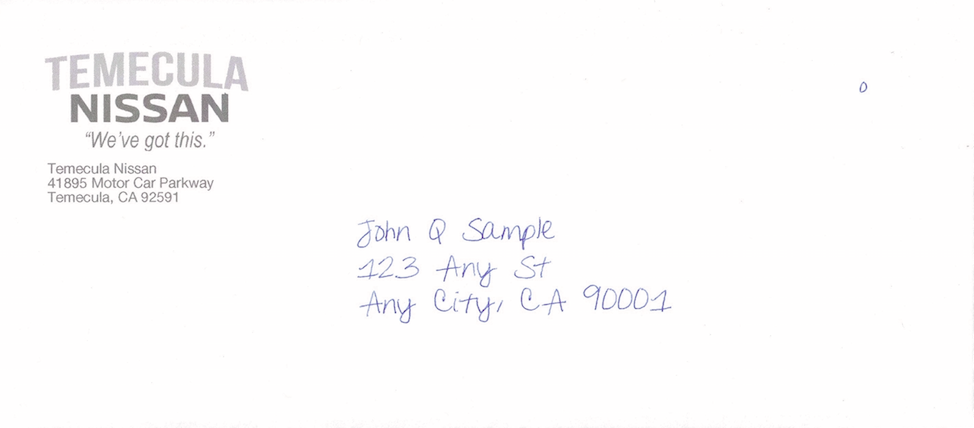 TEMECULA
NISSAN
“We’ve got this.”
Temecula Nissan
41895 Motor Car Parkway
Temecula, CA 92591
0
John Q Sample
123 Any St
Any City, CA 90001